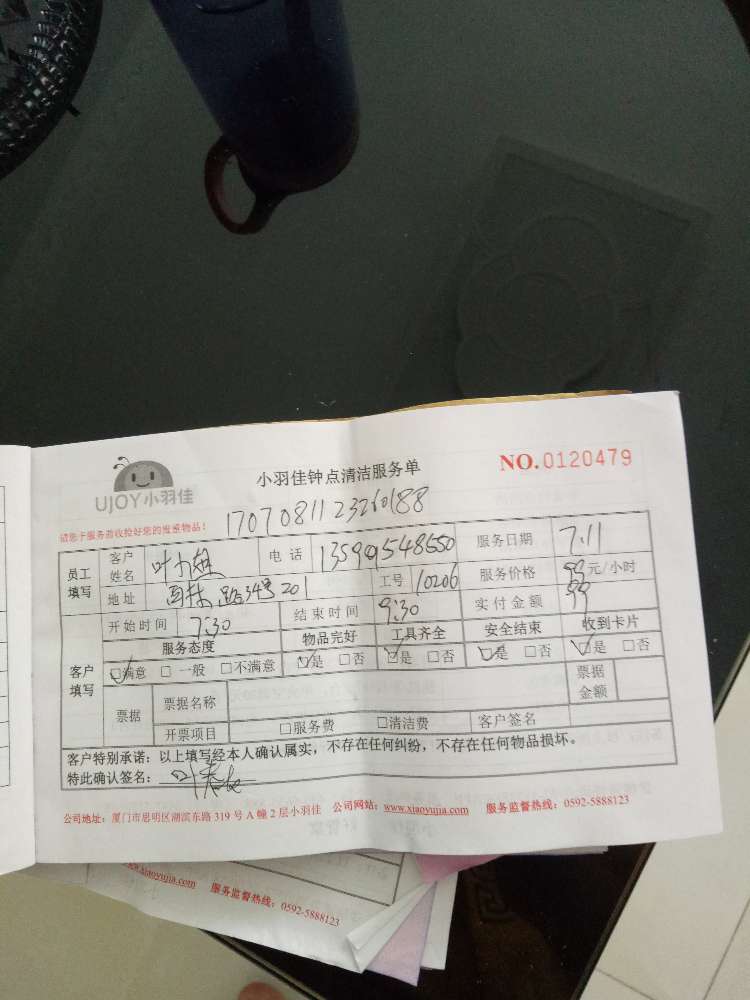 UJOY小羽佳
小羽佳钟点清洁服务单
NO.0120479
请您于服务前收捡好您的贵重物品!
1707081123260188
员工填写 客户姓名 叶小姐 电话 13599548650 服务日期 7.11
地址 路34号201 工号 10206 服务价格 99元/小时
客户填写 开始时间 7:30 结束时间 9:30 实付金额 99
服务态度 物品完好 工具齐全 安全结束 收到卡片
☑满意 □一般 □不满意 ☑是 □否 ☑是 □否 ☑是 □否 ☑是 □否
票据 票据名称 票据金额
开票项目 □服务费 □清洁费 客户签名
客户特别承诺：以上填写经本人确认属实，不存在任何纠纷，不存在任何物品损坏。
特此确认签名：
公司地址：厦门市思明区湖滨东路 319 号 A 幢 2 层小羽佳 公司网站：www.xiaoyujia.com 服务监督热线：0592-5888123
www.xiaoyujia.com 服务监督热线：0592-5888123